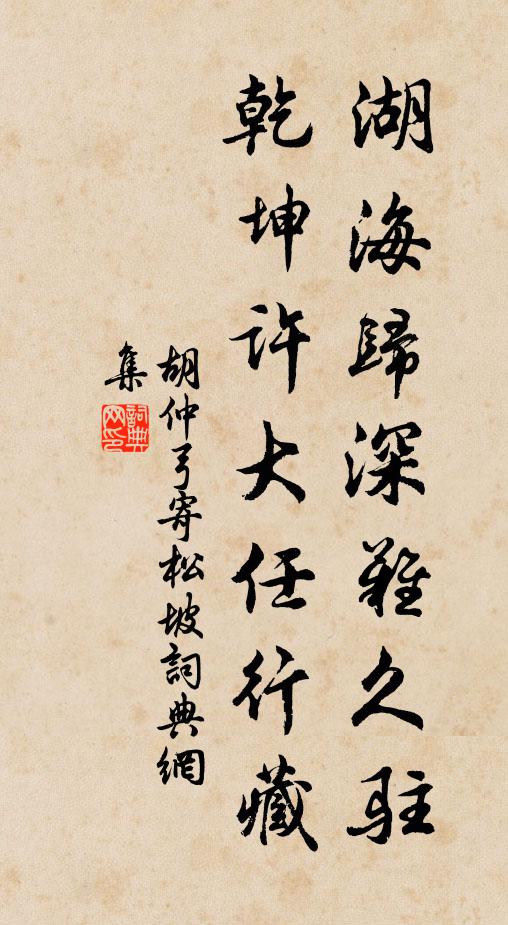 湖海歸深難久駐
乾坤許大任行藏
胡仲弓寄松坡詞典網
集
詞典网印